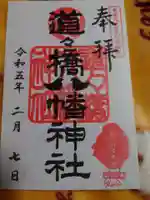 奉拝
道々橋八幡神社
令和五年二月七日